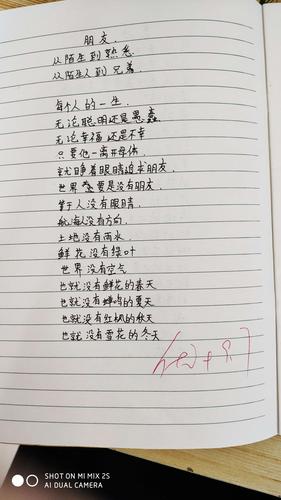 朋友.
从陌生到熟悉
从陌生人到兄弟.
每个人的一生.
无论聪明还是愚蠢
无论幸福还是不幸
只要他一离开母体.
就睁着眼睛追求朋友.
世界要是没有朋友.
等于人没有眼睛.
航海没有方向.
土地没有雨水.
鲜花没有绿叶
世界没有空气
也就没有鲜花的春天
也就没有蝉鸣的夏天
也就没有红枫的秋天
也就没有雪花的冬天
SHOT ON MI MIX 2S
AI DUAL CAMERA